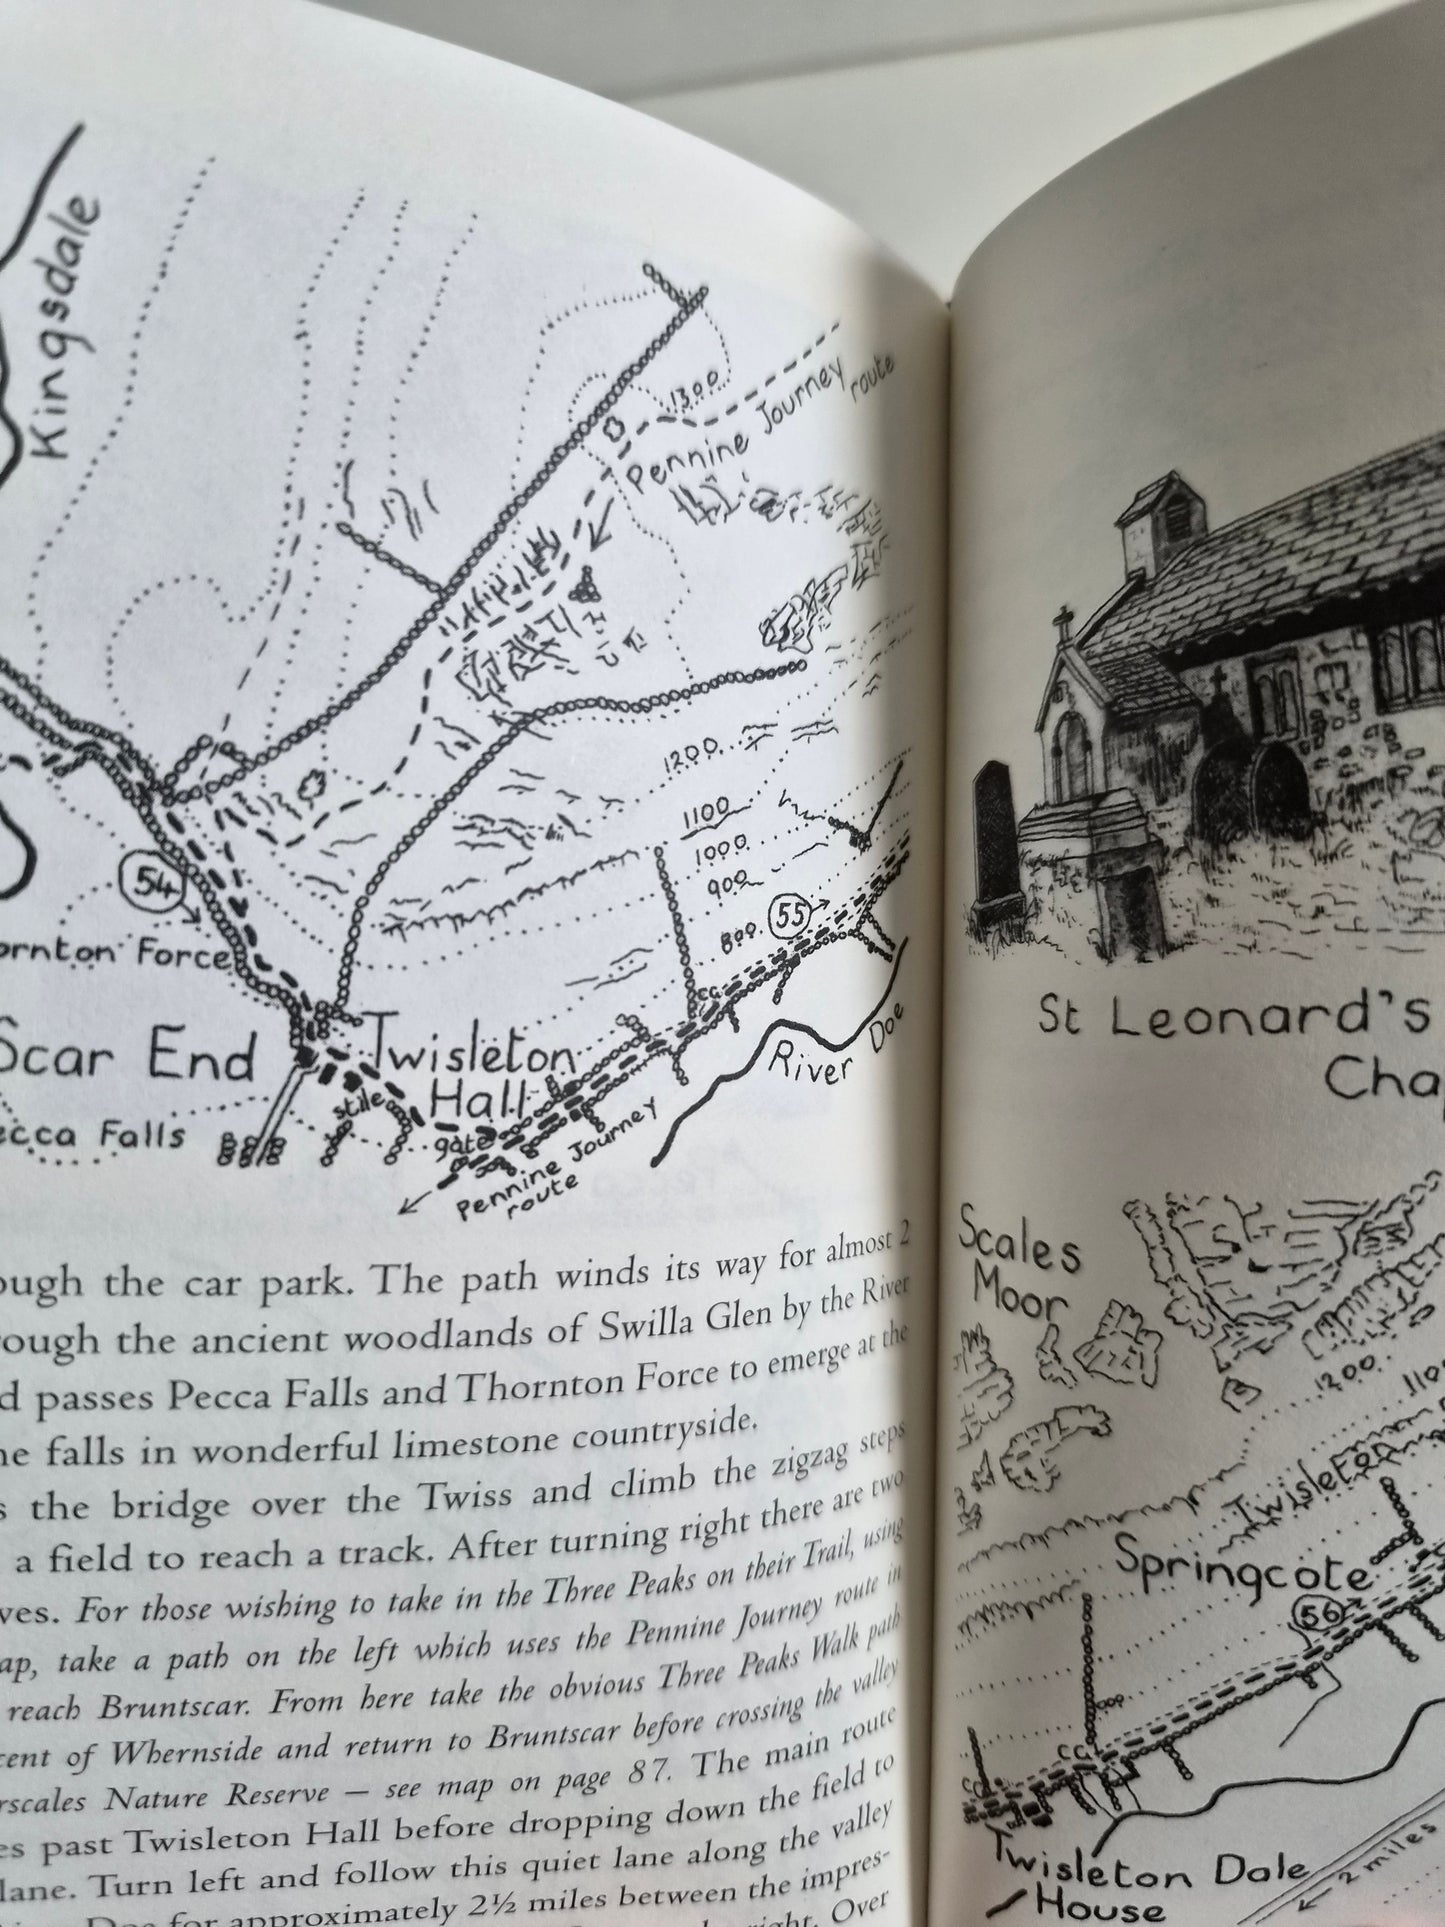 Kingsdale
1300
Pennine Journey
route
1200
1100
1000
900
800
54
55
ornton Force
Scar End
Twisleton
Hall
River Doe
stile
gate
ecca Falls
Pennine Journey
route
ough the car park. The path winds its way for almost 2
rough the ancient woodlands of Swilla Glen by the River
d passes Pecca Falls and Thornton Force to emerge at the
ne falls in wonderful limestone countryside.
s the bridge over the Twiss and climb the zigzag steps
a field to reach a track. After turning right there are two
ves. For those wishing to take in the Three Peaks on their Trail, using
ap, take a path on the left which uses the Pennine Journey route in
reach Bruntscar. From here take the obvious Three Peaks Walk path
cent of Whernside and return to Bruntscar before crossing the valley
rscales Nature Reserve – see map on page 87. The main route
es past Twisleton Hall before dropping down the field to
lane. Turn left and follow this quiet lane along the valley
Doe for approximately 2½ miles between the impres-
right. Over
St Leonard's
Cha
Scales
Moor
1200
110
Twisleton
Springcote
56
CG
Twisleton Dale
House
2 miles